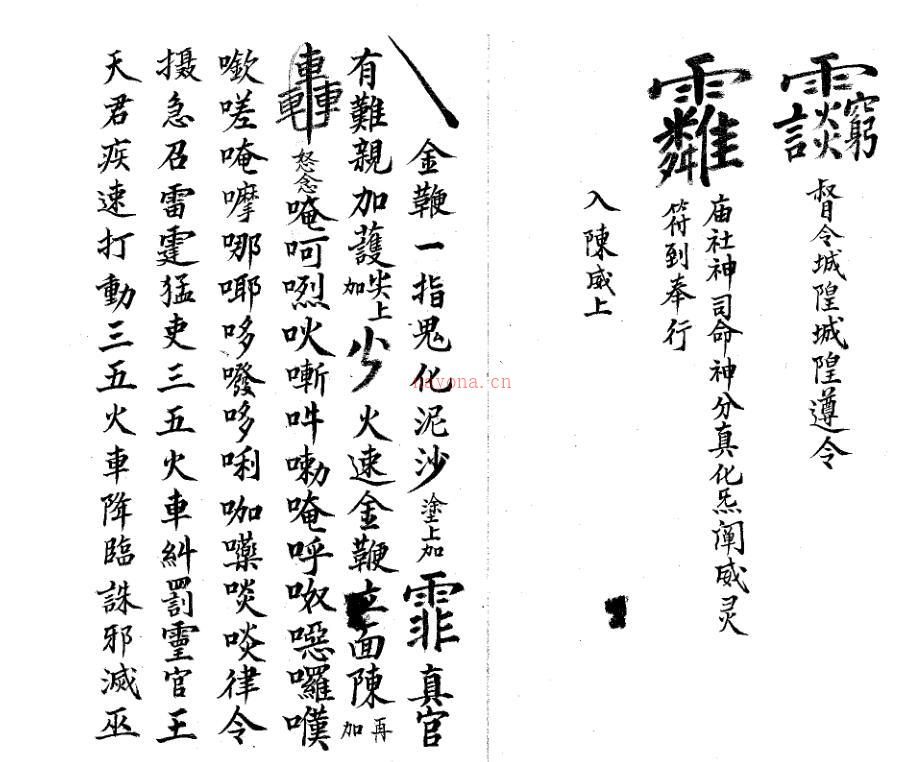 督令城隍城隍遵令
庙社神司命神分真化炁阐威灵
符到奉行
入陳威上
金鞭一指鬼化泥沙塗上加霏真官
有難親加護尖上加少火速金鞭立面陳再加
轟怒念唵呵吽嘞唵呼呶噁囉嘆
嗟唵嚤哪哆哆唎咖啖啖律令
摄急召雷霆猛吏三五火車糾罰靈官王
天君疾速打動三五火車降臨誅邪滅巫
nayona.cn